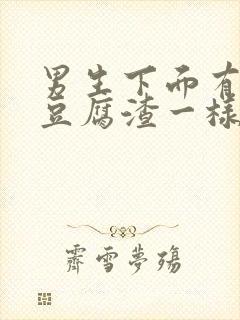 男生下面有
豆腐渣一样
霽雪夢殤